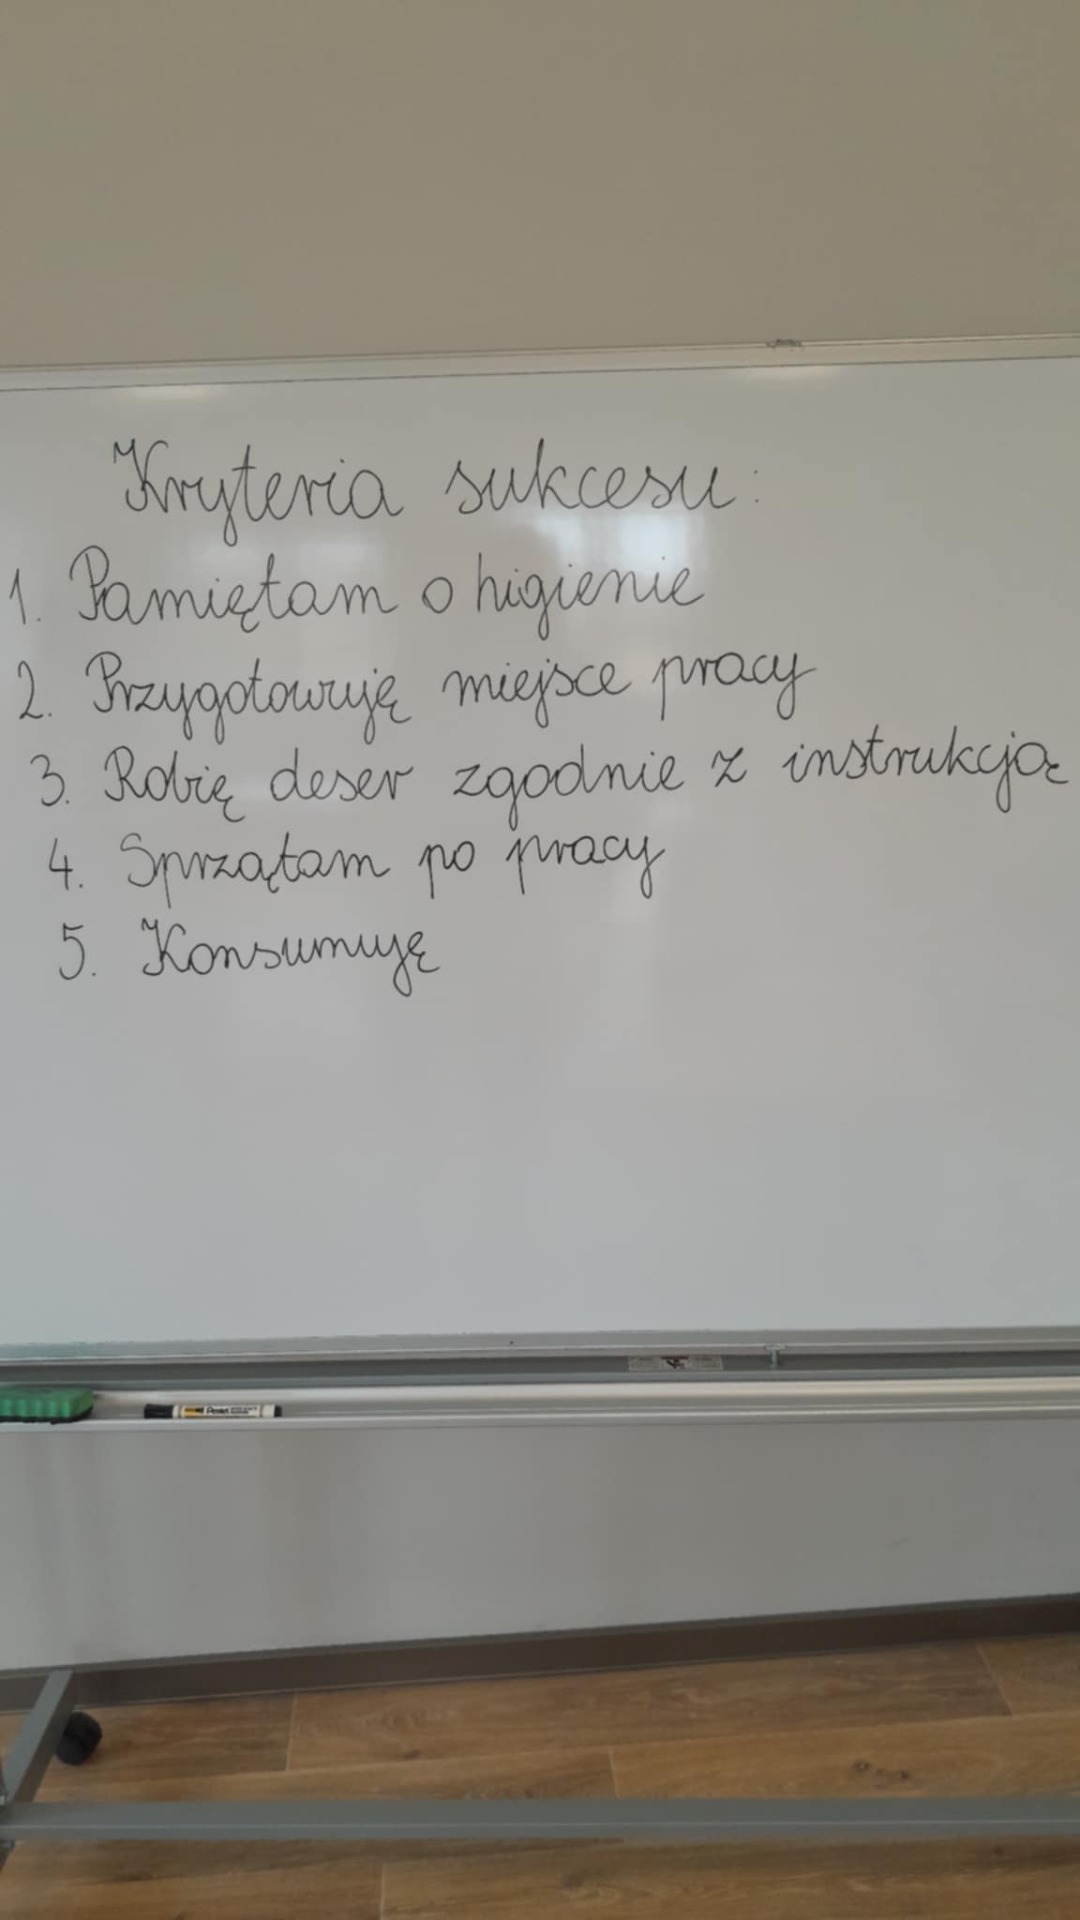 Kryteria sukcesu:
1. Pamiętam o higienie
2. Przygotowuję miejsce pracy
3. Robię deser zgodnie z instrukcją
4. Sprzątam po pracy
5. Konsumuję